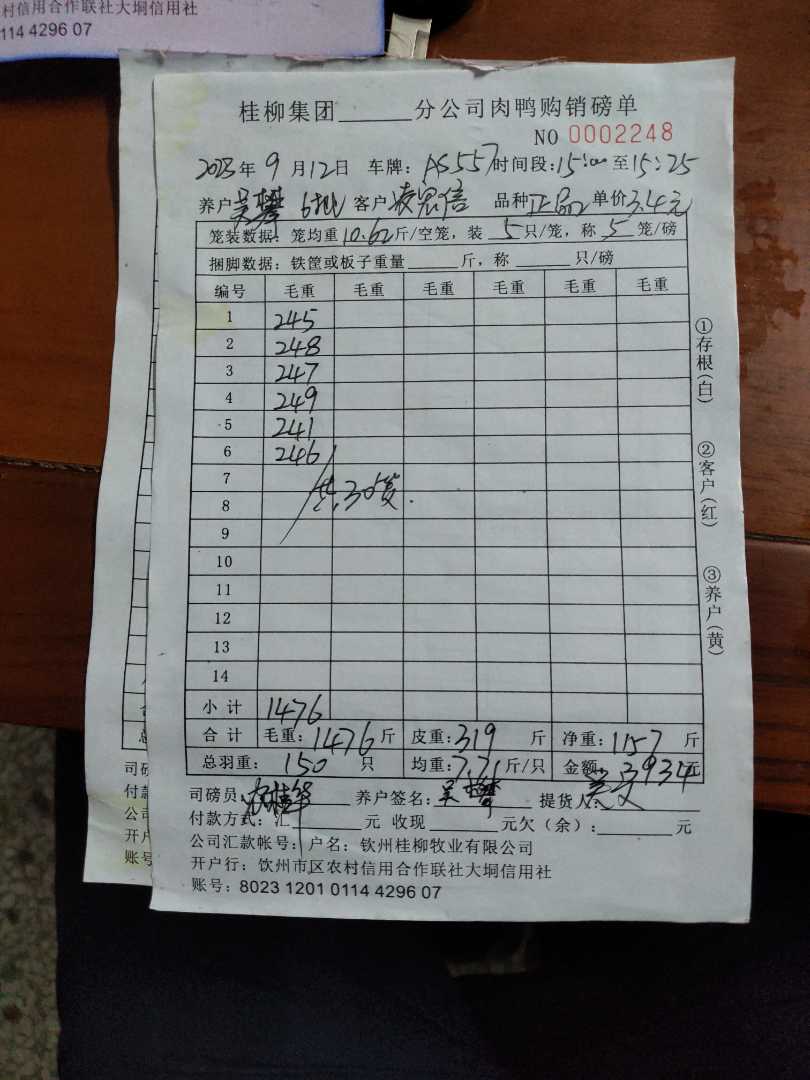 村信用合作联社大垌信用社
114 4296 07
桂柳集团______分公司肉鸭购销磅单
NO 0002248
2023年9月12日 车牌:AS557时间段:15:00至15:25
养户吴攀 6批 客户凌宏信 品种正品 单价3.4元
笼装数据:笼均重10.62斤/空笼,装5只/笼,称5笼/磅
捆脚数据:铁筐或板子重量______斤,称______只/磅
编号 毛重 毛重 毛重 毛重 毛重 毛重
1 245
2 248
3 247
4 249
5 241
6 246
7
8 共30笼.
9
10
11
12
13
14
小计 1476
合计 毛重:1476斤 皮重:319斤 净重:1157斤
总羽重:150只 均重:7.71斤/只 金额:3934元
司磅员: 养户签名:吴攀 提货人:
付款方式:汇______元 收现______元欠(余):______元
公司汇款帐号:户名:钦州桂柳牧业有限公司
开户行:饮州市区农村信用合作联社大垌信用社
账号:8023 1201 0114 4296 07
①存根(白)
②客户(红)
③养户(黄)
司磅
付款
公司
开户
账号